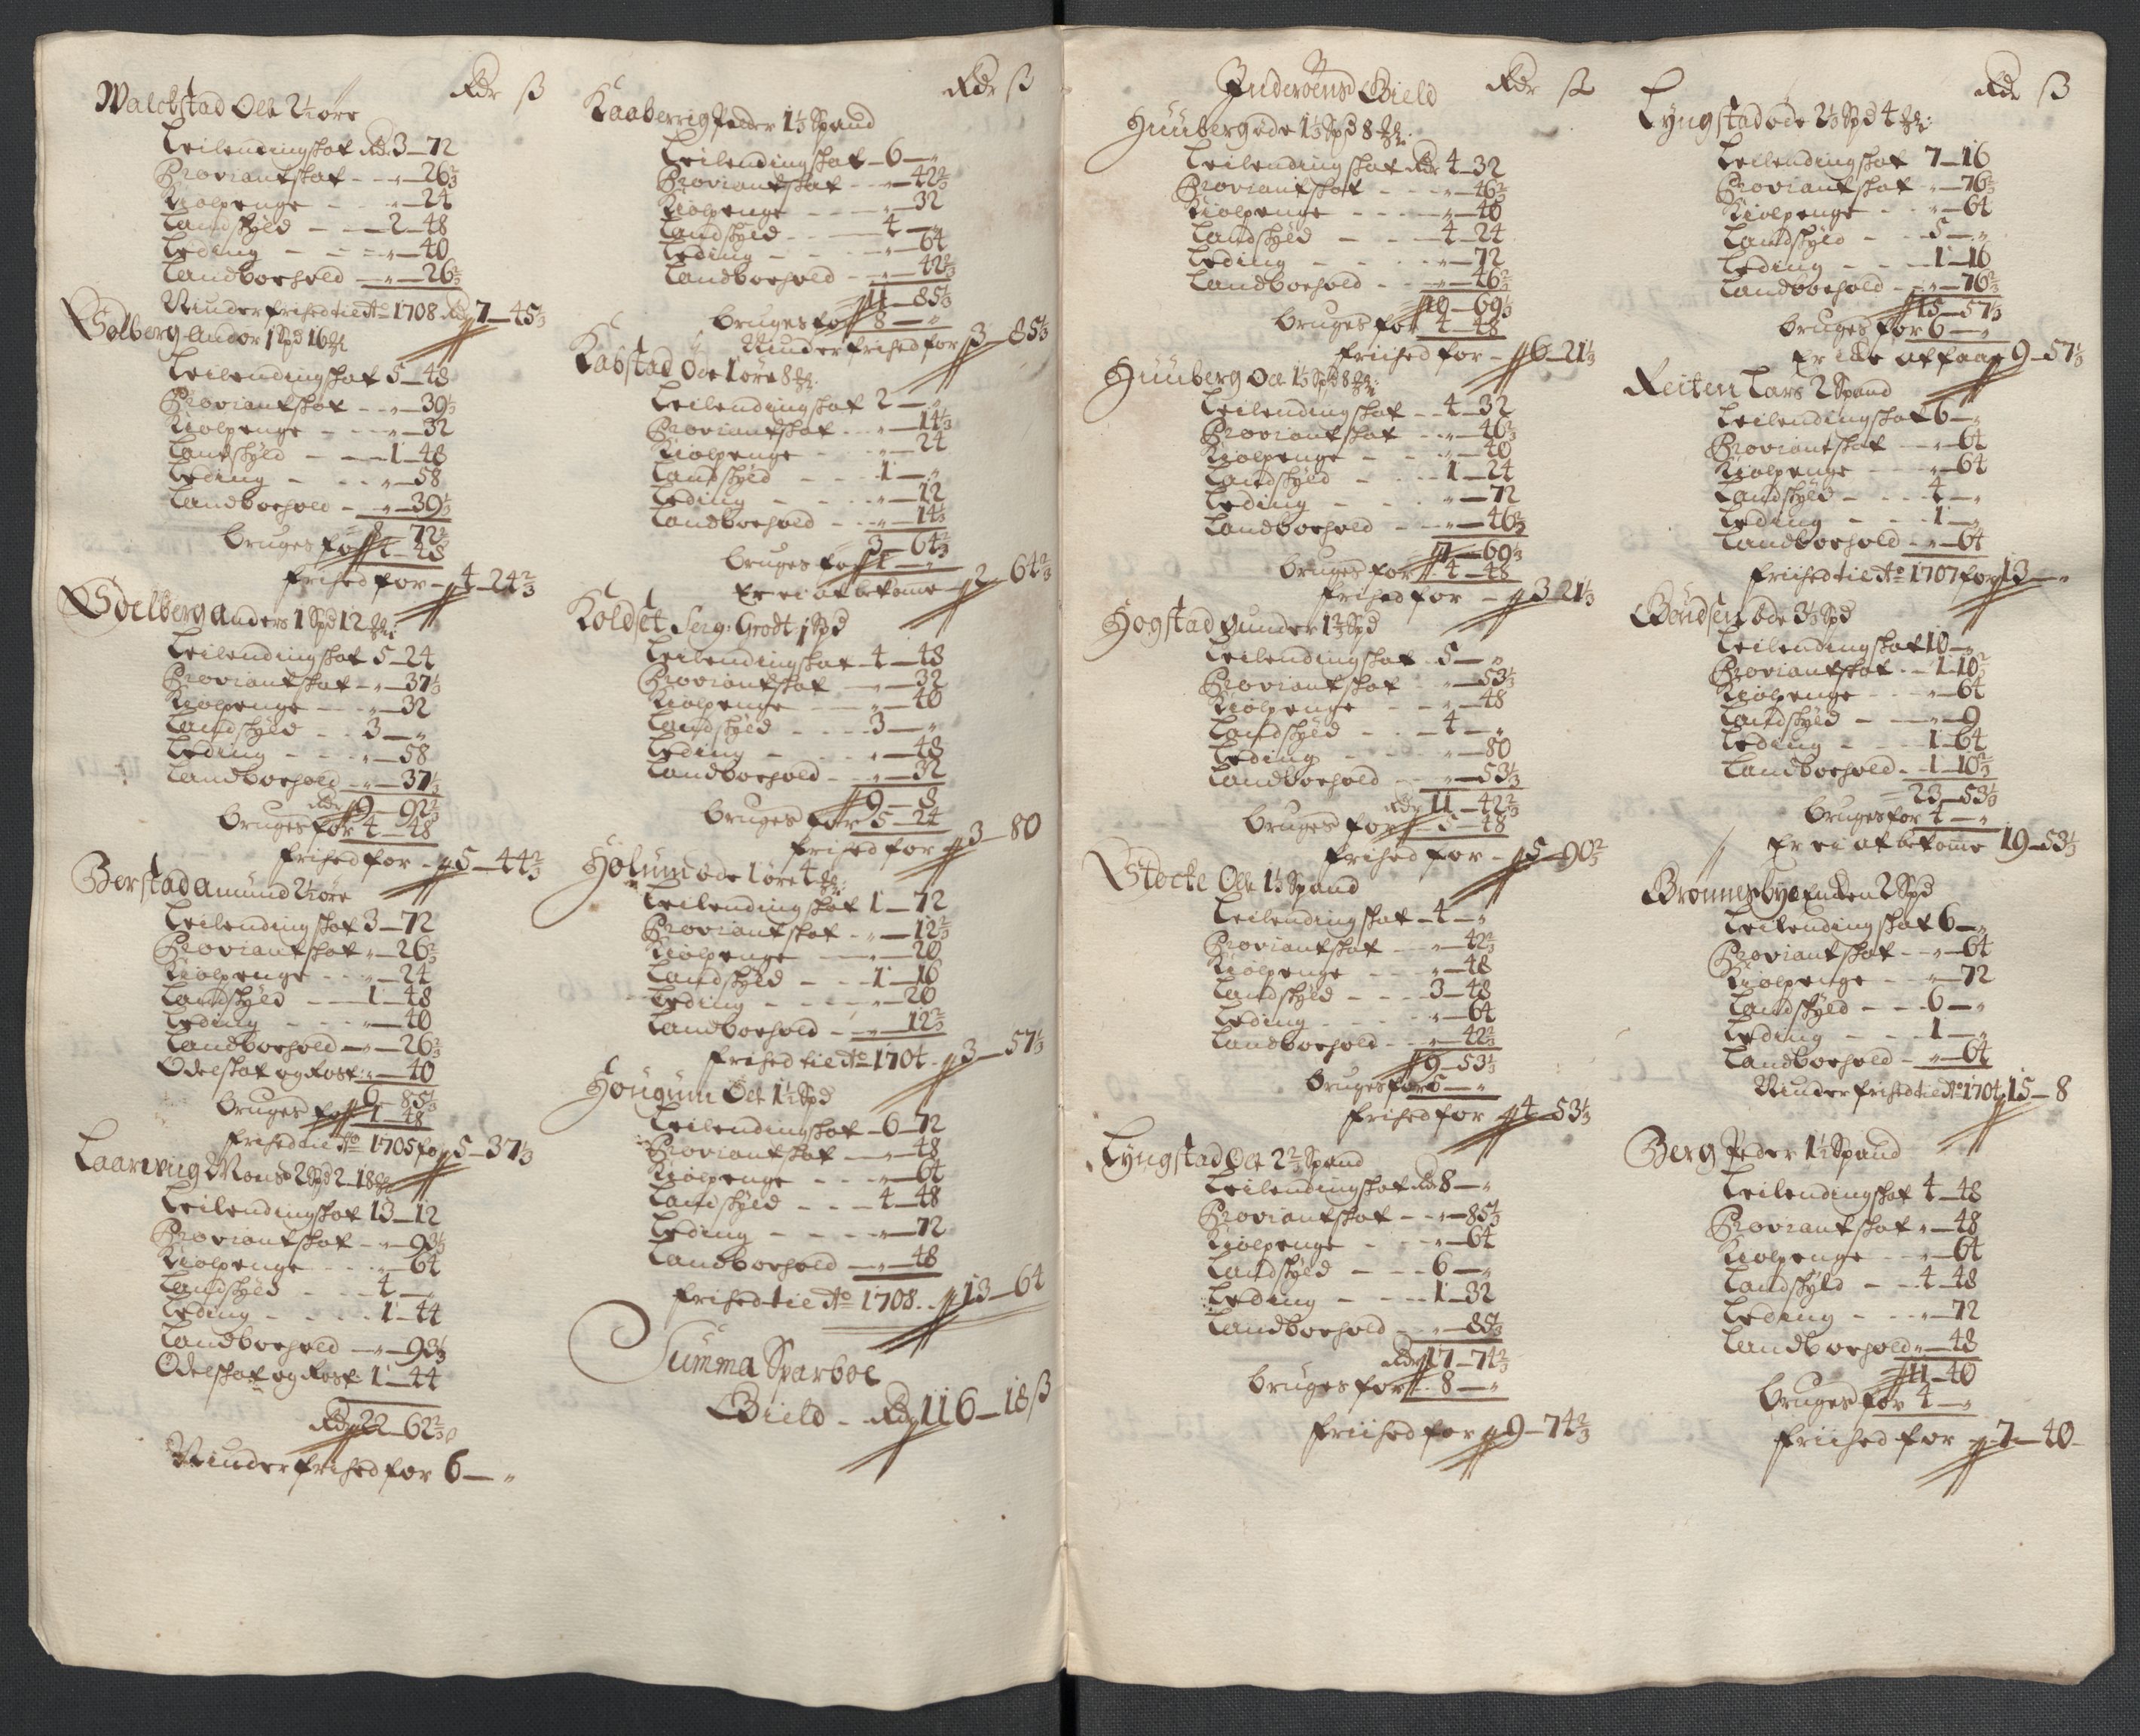 Rdr ß
Walckstad Oele 2½ øre
Leilendingskat Rdr 3 — 72
Proviantskat — „ — 26⅔
Kiølpenge — „ — 24
Landskyld — 2 — 48
Leding — „ — 40
Landboehold — „ — 26⅔
Niuder frihed til Ao 1708 Rdr 7 — 45⅓
Solberg Andor 1 Spd 16
Leilendingskat 5 — 48
Proviantskat — „ — 39⅓
Kiølpenge — „ — 32
Landskyld — 1 — 48
Leding — „ — 58
Landboehold — „ — 39⅓
8 — 72⅔
bruges for 4 — 48
frihed for — 4 — 24⅔
Sdelberg Anders 1 Spd 12
Leilendingskat 5 — 24
Proviantskat — „ — 37⅓
Kiølpenge — „ — 32
Landskyld — 3 — „
Leding — „ — 58
Landboehold — „ — 37⅓
Rdr 9 — 92⅔
bruges for 4 — 48
frihed for — 5 — 44⅔
Berstad Amund 2½ øre
Leilendingskat 3 — 72
Proviantskat „ — 26⅔
Kiølpenge — „ — 24
Landskyld — 1 — 48
Leding — „ — 40
Landboehold — „ — 26⅔
Odelskat og Rost: „ — 40
6 — 85⅓
bruges for 1 — 48
frihed til Ao 1705 for 5 — 37⅓
Laarwiig Mons 2 Spd 2 — 18
Leilendingskat 13 — 12
Proviantskat — „ — 93⅓
Kiølpenge — „ — 64
Landskyld — 4 — „
Leding — 1 — 44
Landboehold — „ — 93⅓
Odelskat og Rost: 1 — 44
Rdr 22 — 62⅔
Niuder frihed for 6 — „
Rdr ß
Kaaberrig Peder 1⅓ Spand
Leilendingskat — 6 — „
Proviantskat — „ — 42⅔
Kiølpenge — „ — 32
Landskyld — 4 — „
Leding — „ — 64
Landboehold — „ — 42⅔
11 — 85⅓
bruges for 8 — „
Niuder frihed for 3 — 85⅓
Kabstad Øde 1 øre 8
Leilendingskat 2 — „
Proviantskat — „ — 14⅓
Kiølpenge — „ — 24
Landskyld — 1 — „
Leding — „ — 12
Landboehold — „ — 14⅓
3 — 64⅔
bruges for 1 — „
Er ei at bekome — 2 — 64⅔
Koldset Serg: Grodt 1 Spd
Leilendingskat — 4 — 48
Proviantskat — „ — 32
Kiølpenge — „ — 40
Landskyld — 3 — „
Leding — „ — 48
Landboehold — „ — 32
9 — 8
bruges for 5 — 24
frihed for — 3 — 80
Holum øde 1 øre 4
Leilendingskat 1 — 72
Proviantskat — „ — 12⅔
Kiølpenge — „ — 20
Landskyld — 1 — 16
Leding — „ — 20
Landboehold — „ — 12⅔
frihed til Ao 1704 — 3 — 57⅓
Hougum Ole 1½ Spd
Leilendingskat — 6 — 72
Proviantskat — „ — 48
Kiølpenge — „ — 64
Landskyld — 4 — 48
Leding — „ — 72
Landboehold — „ — 48
frihed til Ao 1708 — 13 — 64
Summa Sparboe
Gield — Rdr 116 — 18 ß
Inderøens Gield Rdr ß
Huuberg øde 1⅓ Spd 8
Leilendingskat Rdr 4 — 32
Proviantskat — „ — 46⅔
Kiølpenge — „ — 40
Landskyld — 4 — 24
Leding — „ — 72
Landboehold — „ — 46⅔
10 — 69⅓
bruges for 4 — 48
friihed for — 6 — 21⅓
Huuberg Ole 1⅓ Spd 8
Leilendingskat — 4 — 32
Proviantskat — „ — 46⅔
Kiølpenge — „ — 40
Landskyld — 1 — 24
Leding — „ — 72
Landboehold — „ — 46⅔
7 — 69⅓
bruges for 4 — 48
frihed for — 3 21⅓
Hogstad Gunder 1⅔ Spd
Leilendingskat 5 — „
Proviantskat — „ — 53⅓
Kiølpenge — „ — 48
Landskyld — 4 — „
Leding — „ — 80
Landboehold — „ — 53⅓
Rdr 11 — 42⅔
bruges for — 5 — 48
frihed for — 5 — 90⅔
Stocke Ole 1⅓ Spand
Leilendingskat — 4 — „
Proviantskat — „ — 42⅔
Kiølpenge — „ — 48
Landskyld — 3 — 48
Leding — „ — 64
Landboehold — „ — 42⅔
9 — 53⅓
bruges for 5 — „
frihed for 4 — 53⅓
Lyngstad Ole 2⅔ Spand
Leilendingskat Rdr 8 — „
Proviantskat — „ — 85⅓
Kiølpenge — „ — 64
Landskyld — 6 — „
Leding — 1 — 32
Landboehold — „ — 85⅓
Rdr 17 — 74⅔
bruges for 8 — „
friihed for 9 — 74⅔
Rdr ß
Lyngstad øde 2⅓ Spd 4
Leilendingskat 7 — 16
Proviantskat „ — 76⅔
Kiølpenge — „ — 64
Landskyld — 5 — „
Leding — 1 — 16
Landboehold — „ — 76⅔
15 — 57⅓
bruges for 6 — „
Er ikke at faa 9 — 57⅓
Reiten Lars 2 Spand
Leilendingskat 6 — „
Proviantskat — „ — 64
Kiølpenge — „ — 64
Landskyld — 4 — „
Leding — 1 — „
Landboehold — „ — 64
friihed til Ao 1707 for 13 — „
Bendsem øde 3⅓ Spd
Leilendingskat 10 — „
Proviantskat — 1 — 10⅔
Kiølpenge — „ — 64
Landskyld — „ — 9
Leding — 1 — 64
Landboehold — 1 — 10⅔
23 — 53⅓
bruges for 4 — „
Er ei at bekome 19 — 53⅓
Brønnesbye Enken 2 Spd
Leilendingskat 6 — „
Proviantskat — „ — 64
Kiølpenge — „ — 72
Landskyld — 6 — „
Leding — 1 — „
Landboehold — „ — 64
Niuder frihed til Ao 1704 15 — 8
Berg Peder 1½ Spand
Leilendingskat 4 — 48
Proviantskat „ — 48
Kiølpenge — „ — 64
Landskyld — 4 — 48
Leding — „ — 72
Landboehold „ — 48
11 — 40
bruges for 4 — „
friihed for 7 — 40